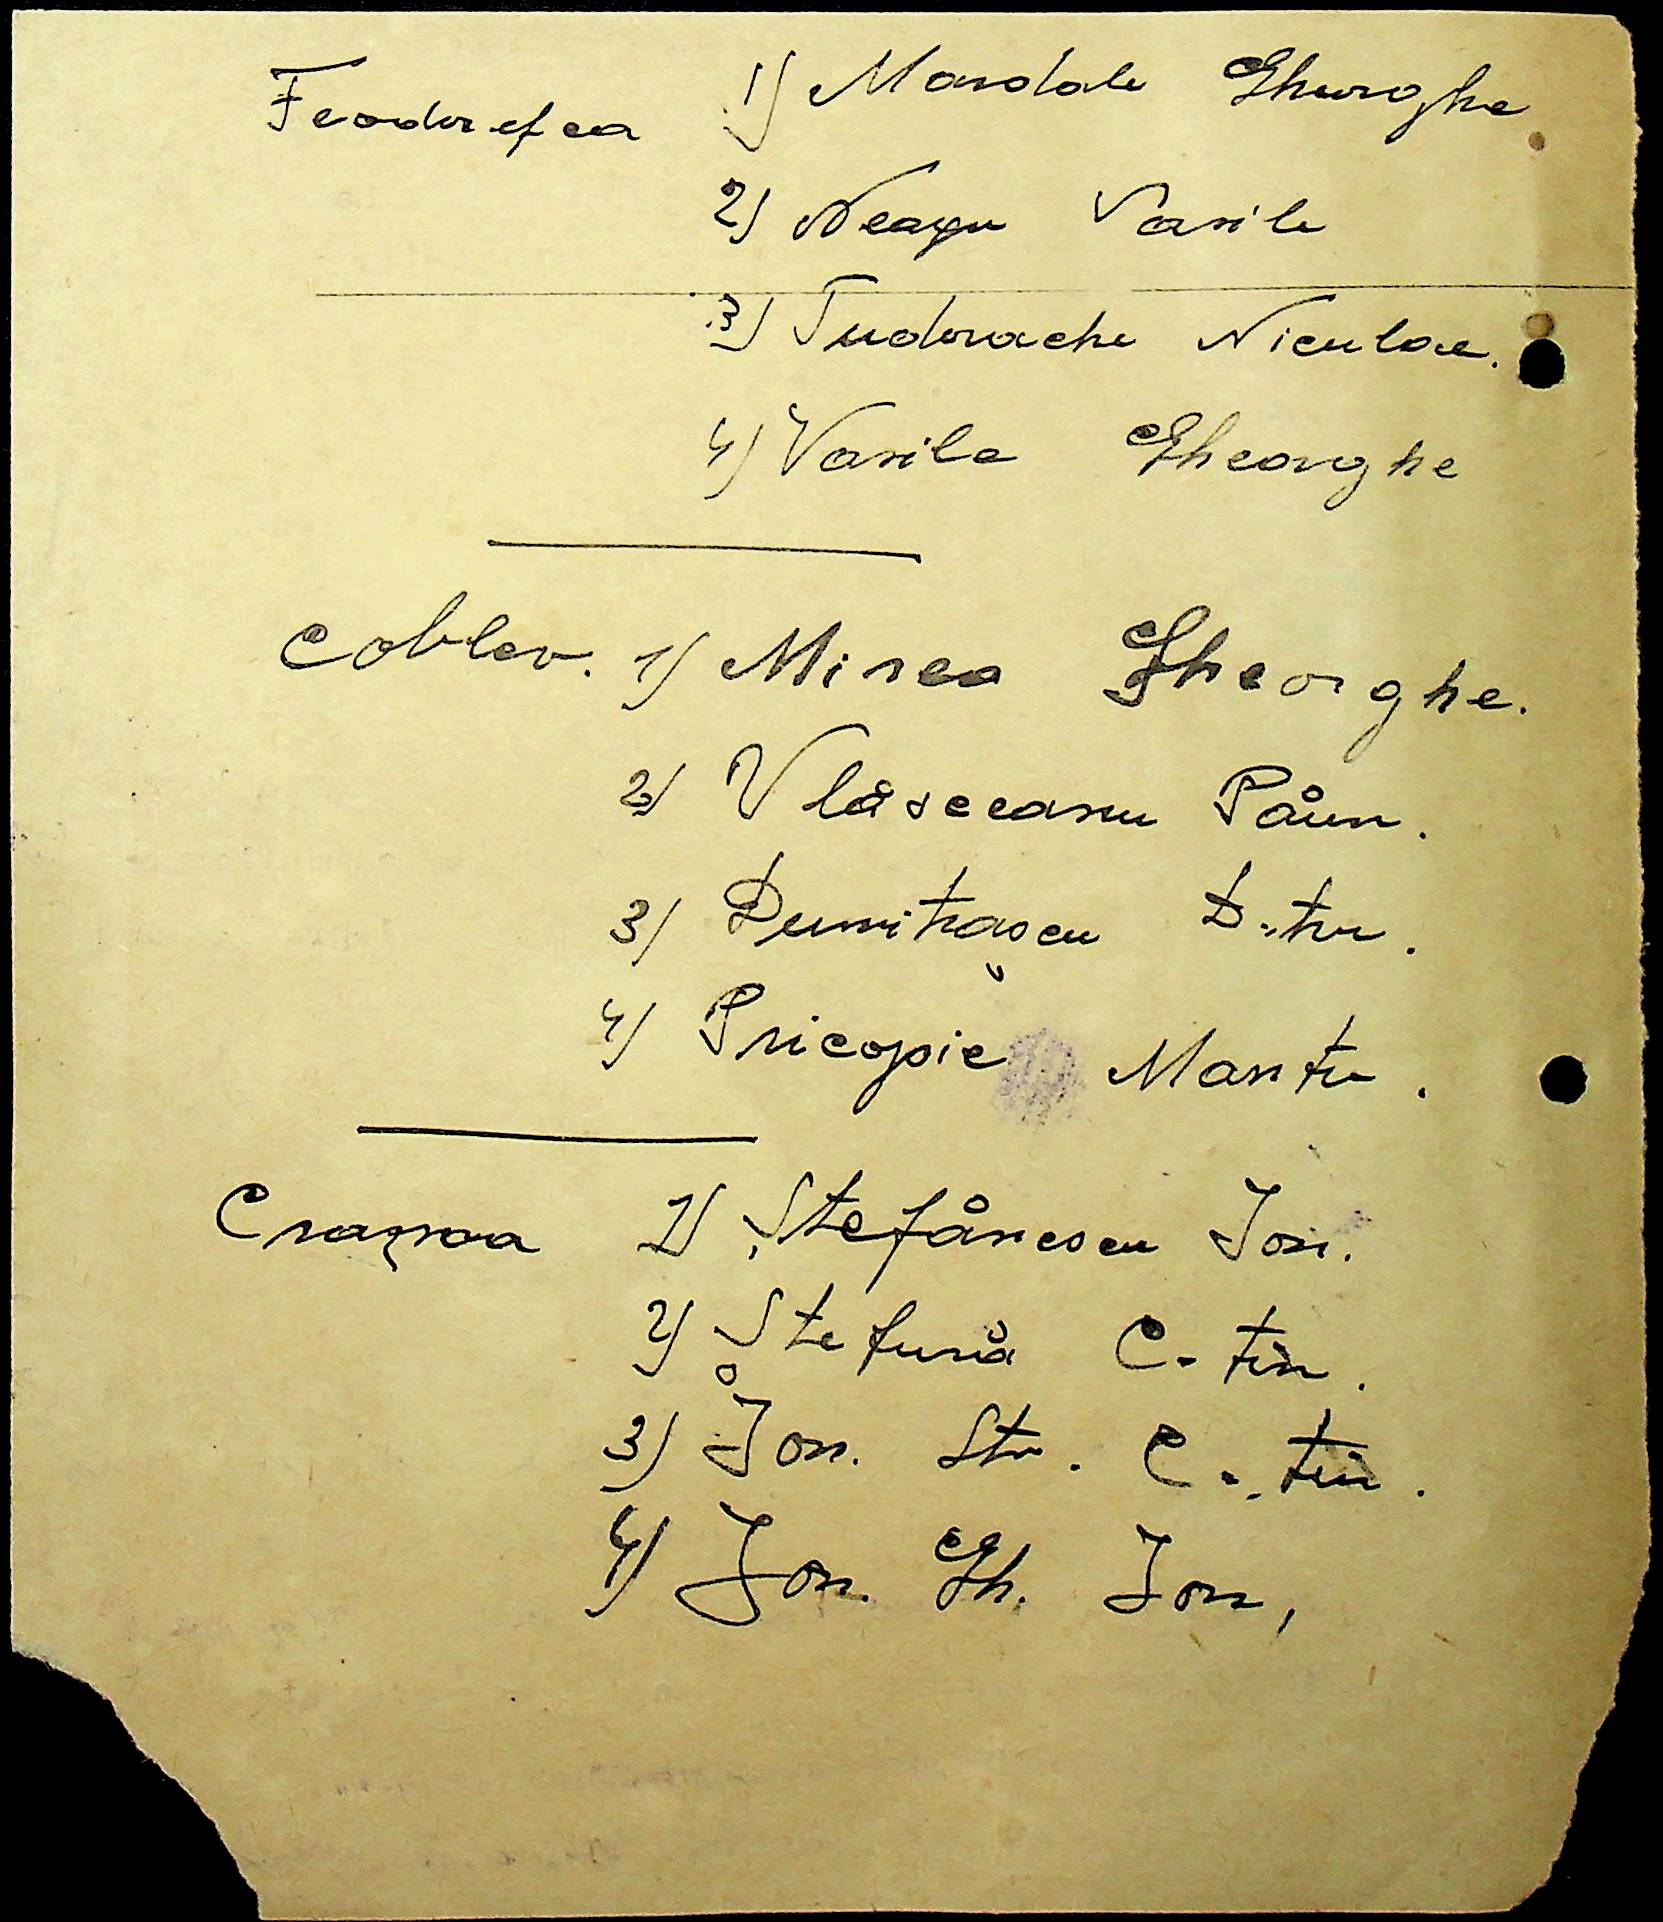 Feodorefca 1) Mandale Gheorghe
2) Neagu Vasile
3) Tudorache Niculae.
4) Vasile Gheorghe
Coblev. 1) Mirea Gheorghe.
2) Vlăsceanu Păun.
3) Dumitrașcu D-tru.
4) Pricopie Mantu.
Craznaa 1) Ștefănescu Ion.
2) Ștefură C-tin.
3) Ion. Str. C-tin.
4) Ion. Gh. Ion,